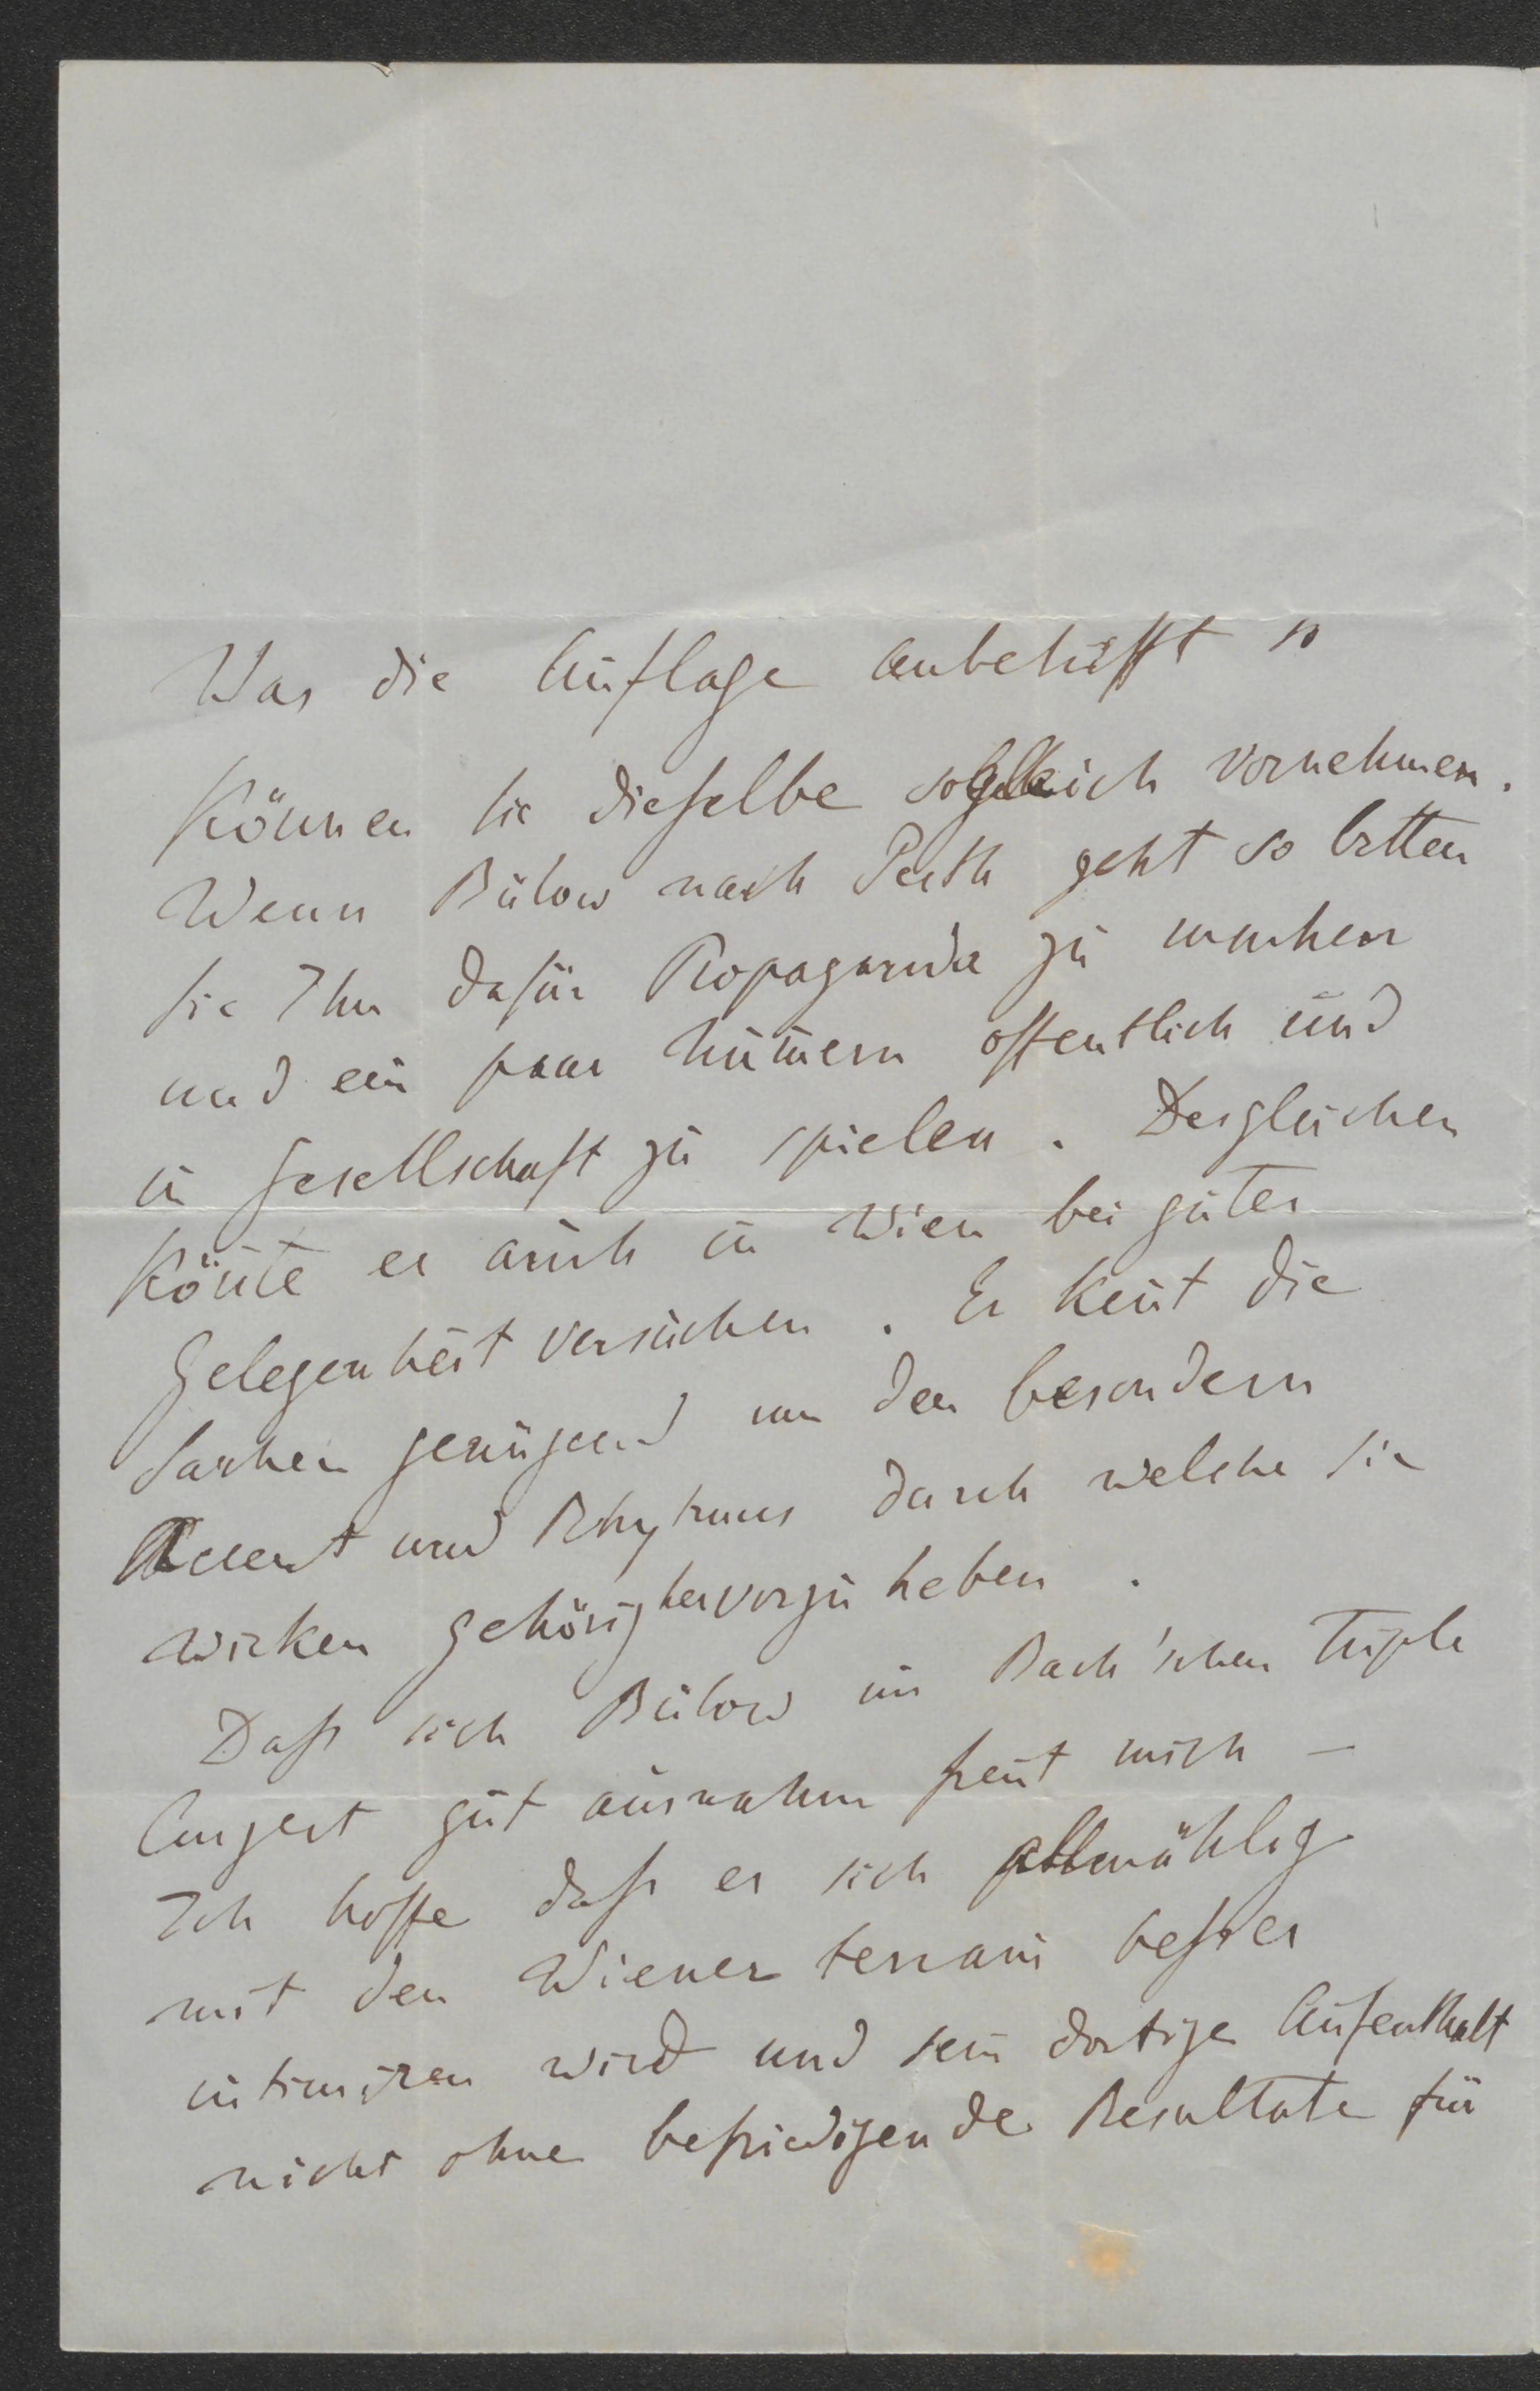 Was die Auflage anbetrifft so
können Sie dieselbe sogleich vornehmen.
Wenn Bülow nach Pesth geht so bitten
Sie Ihn dafür Propaganda zu machen
und ein paar Num̄ern öffentlich und
in Gesellschaft zu spielen. Desgleichen
kön̄te er auch in Wien bei guter
Gelegenheit versuchen. Er ken̄t die
Sachen genügend um den besondern
Accent und Rhytmus durch welche sie
wirken gehörig hervorzuheben.
Daß sich Bülow im Bach'schen Triple
Conzert gut ausnahm freut mich –
Ich hoffe daß er sich allmählig
mit den Wiener terrain besser
intimiren wird und sein dortige Aufenthalt
nicht ohne befriedigende Resultate für